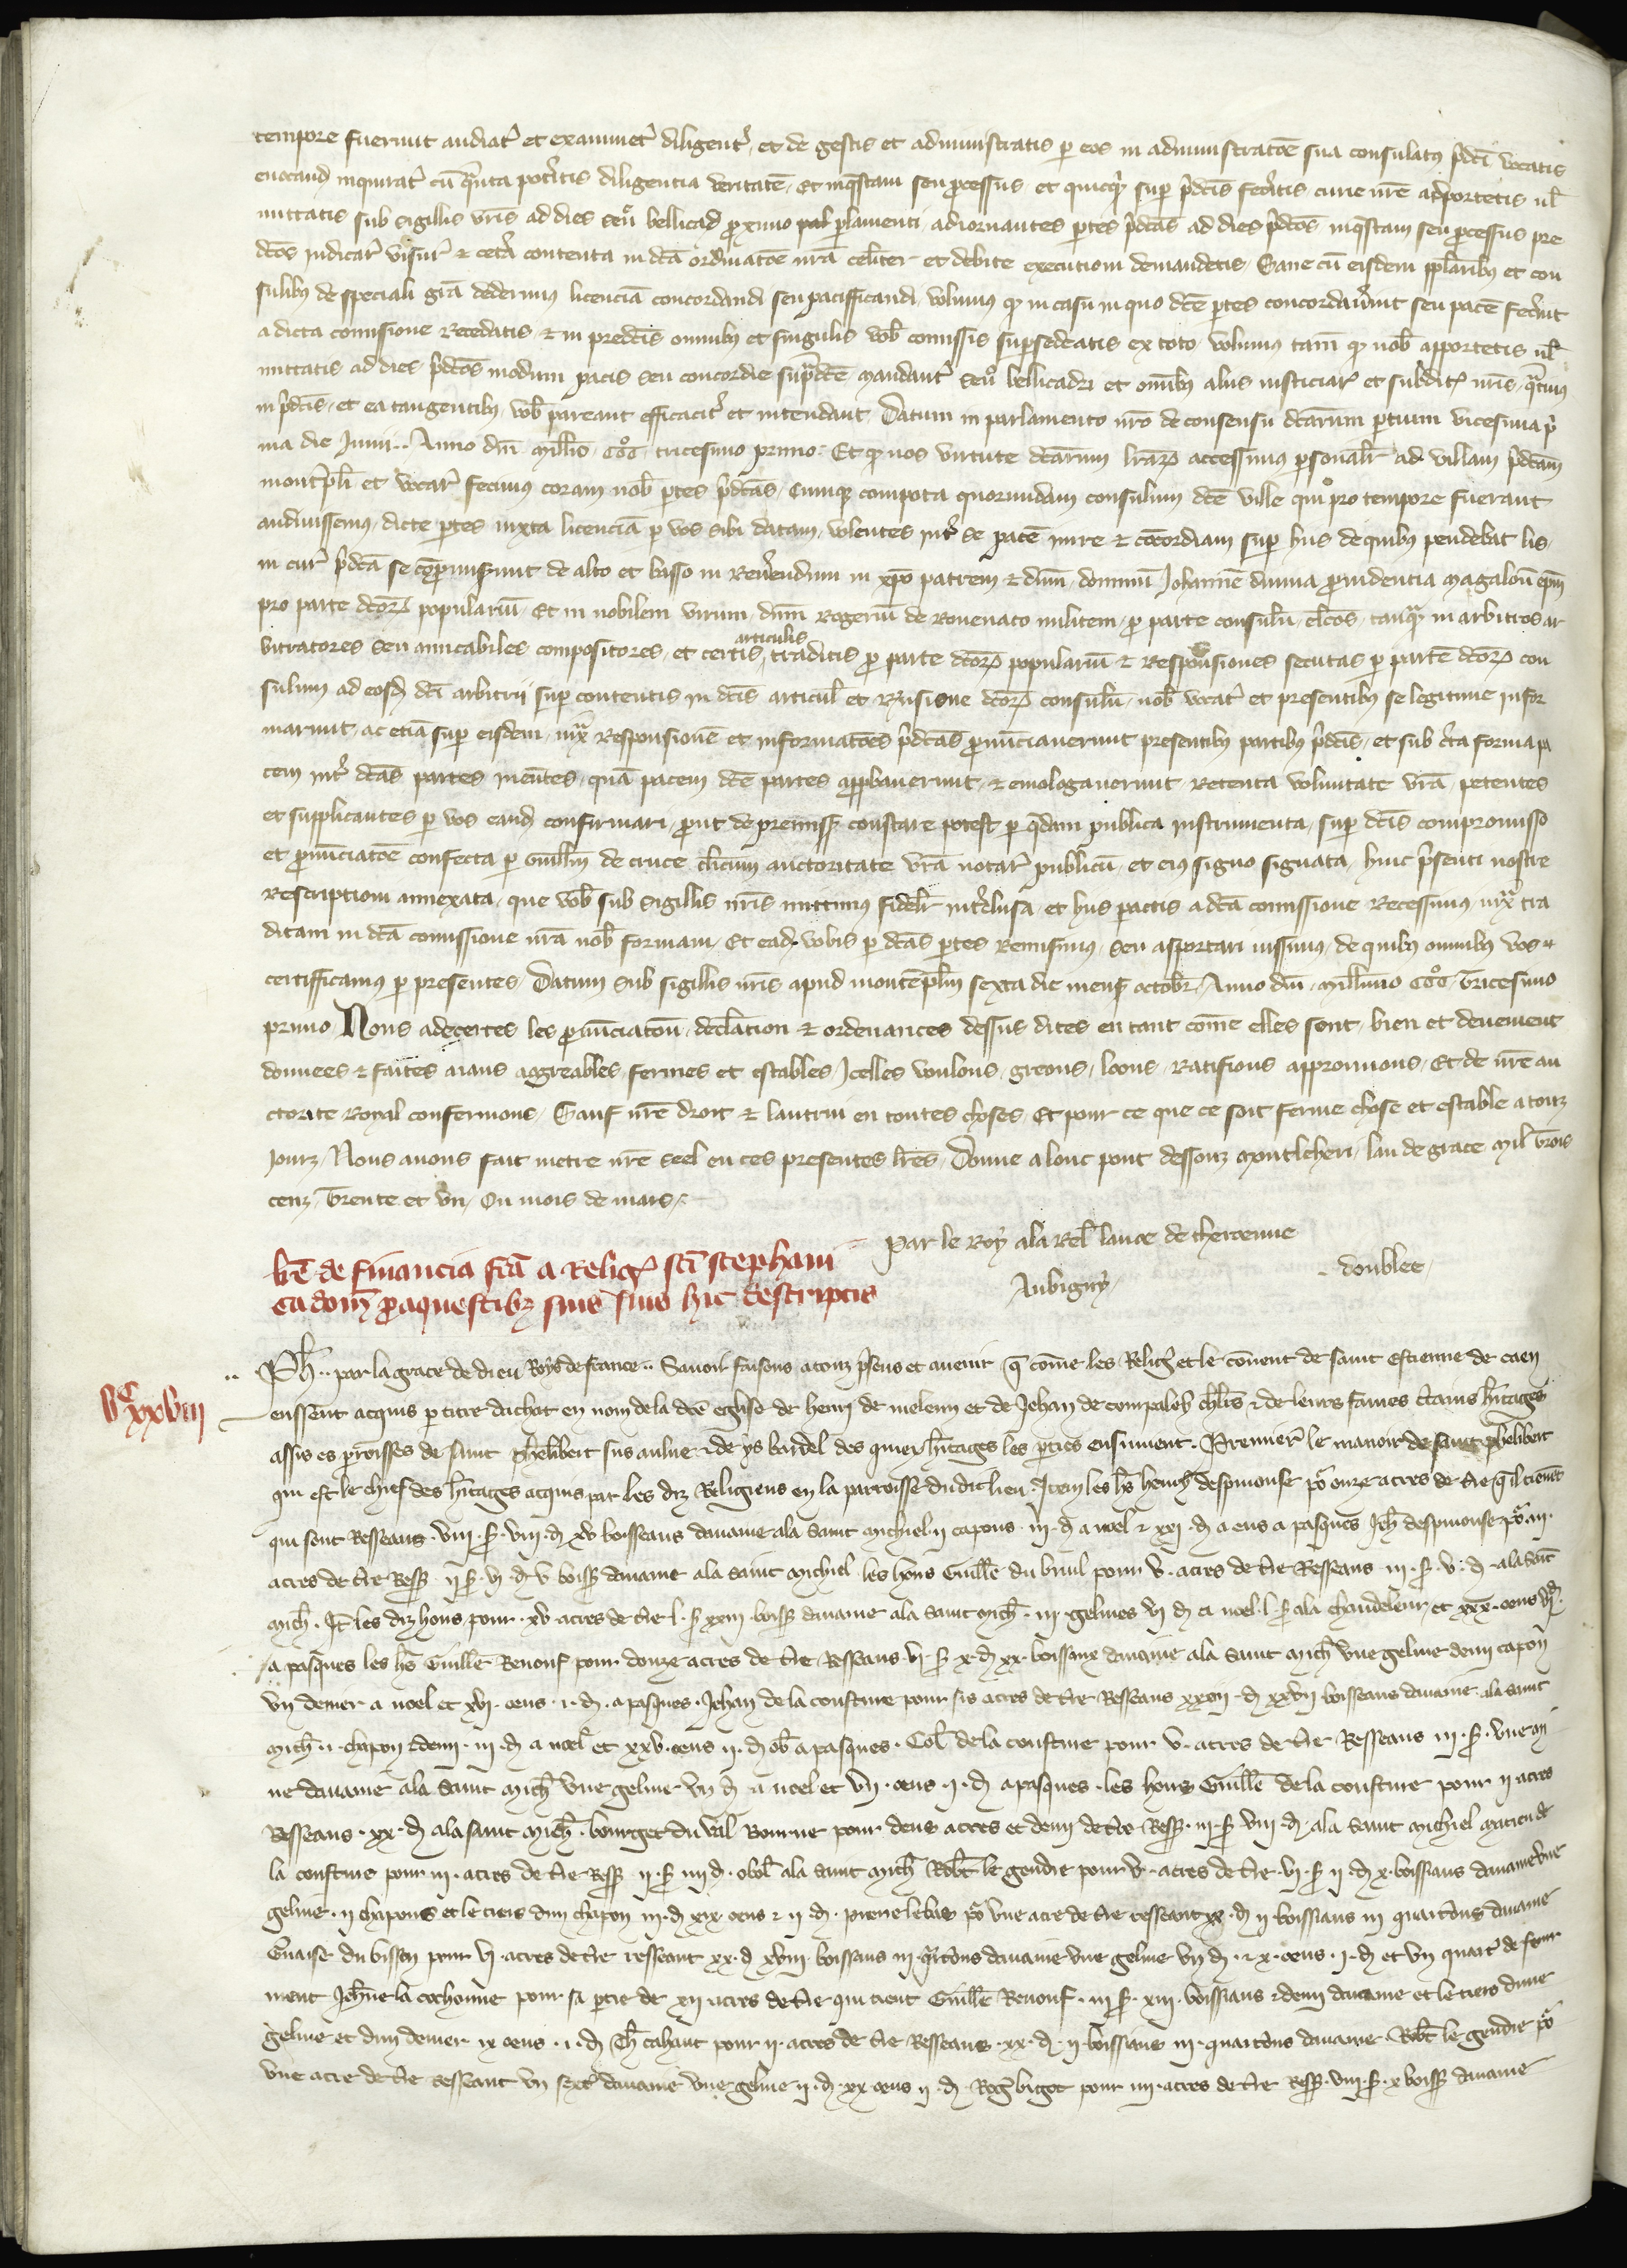 tempore fuerunt audiatꝭ et examinetꝭ diligentꝭ, et de gestis et administratis p eos in administratōe sua consulatꝰ p̄dc̄i vocatis
evocand inquiratꝭ cū qͣnta potꝭitis diligentia veritatē, Et inq̄stam seu processus, et quicqͥd sup p̄dcīs fecꝭitis curie nr̄e apportetis ul̄
mittatis sub sigillis vr̄is ad dies seu̾ bellicad proximo pal plamenti, adiornantes ptes p̄dcās ad dies p̄dcōs inq̄stam seu processus pre
dcōs iudicarꝭ visurꝭ & cetꝭa contenta in dcā ordinatōe nr̄a celr̄iter et debite executioni demandetis, Sane cū eisdem pplaribꝰ et con
sulibꝰ de speciali gr̄a dederimus licenciā concordandi seu pacifficandi volumus qͦ in casu in quo dcē ptes concordavꝭint seu pacē fecꝭint
a dicta comissione recedatis & in predcīs omnibꝰ et singulis vob̄ comissis supsedeatis ex toto, volumus tam̄ qͦ nob̄ apportetis ul̄
mittatis ad dies p̄dcōs modum pacis seu concordie sup̄dcē mandantꝭ seu̾ bellicadri et omībꝰ aliis iusticiarꝭ et subditꝭ nr̄is, qͣtinus
in p̄dcīs, et ea tangentibꝰ vob̄ pareant efficacitꝭ et intendant Datum in parlamento nr̄o de consensu dcārum ptium vicesima p̄
ma die Iunii .. Anno dn̄i millīo CCCͦ tricesimo primo. Et qͦ nos virtute dcārum lr̄aꝝ accessimus psonalr̄ ad villam p̄dcām
montꝭpl̄i et vocarꝭ fecimus coram nob̄ ptes p̄dcās, Cumqꝫ compota quorundam consulum dcē ville qui pro tempore fuerant
audivissemus, dicte ptes iuxta licenciā p vos sibi datam, volentes intꝭ se pacē inire & cōcordiam sup hiis de quibꝰ pendebat lis,
in curꝭ p̄dcā se cōpromisꝭunt de alto et basso in Revꝭendum in xp̄o patrem & dn̄m, dominū Johannē divina providentia Magaloñ epm̄
pro parte dcōꝝ populariū, Et in nobilem virum, dn̄m Rogeriū de Rovenato militem, p parte consulū, elcōs, tanqͣ in arbitros ar
bitratores seu amicabiles compositores, et certis articulis traditis p parte dcōꝝ populariū & responsiones secutas p partē dcōꝝ con
sulum ad eosd, dcī arbitrii sup contentis in dcīs articul̄ et responsione dcōꝝ consulū, nob̄ vocatꝭ et presentibꝰ se legitime infor
marunt, ac etiā sup eisdem, iuxͣ responsionē et informatōes p̄dcās pronūciaverunt presentibꝰ partibꝰ p̄dcīs, et sub cꝭta forma pa
cem intꝭ dcās partes inientes, quā pacem dcē partes approbaverunt, & emologaverunt, retenta voluntate vr̄a, petentes
et supplicantes p vos eand confirmari, prout de premiss constare potest p qͣdam publica instrumenta, sup dcīs compromisso
et pronūciatōe confecta p Guillm̄ de cruce cl̄icum auctoritate vr̄a notarꝭ publicū, et eiꝰ signo signata, huic p̄senti nostre
rescriptioni annexata, que vob̄ sub sigillis nr̄is mittimus fidelr̄ intꝭclusa, et hiis pactis a dcā comissione recessimus, iuxͣ tra
ditam in dcā comissione nr̄a nob̄ formam, Et ead, vobis p dcās ptes remisimus, seu asportari iussimus, de quibꝰ omnibꝰ vos
certifficamꝰ p presentes, Datum sub sigillis nr̄is apud montēpl̄m sexta die mens octobr̄, Anno dn̄i, millīmo CCCͦ tricesimo
primo, Nous adecertes les pronūciatōn, declāration & ordenances dessus dites en tant cōme elles sont, bien et deuement
donnees & faites aians aggreables, fermes et estables, Icelles voulons, greons, loons, Ratifions approuvons, Et de nr̄e au
ctorite Royal confermons, Sauf nr̄e droit & lautrui en toutes choses, Et pour ce que ce soit ferme chose et estable a touz
jourz, Nous avons fait metre nr̄e seel en ces presentes lr̄es, Donne a lonc pont dessouz Montleheri, lan de grace mil trois
cenz, trente et un, Ou mois de mars,
Par le Roy a la Rel̄ lance de theroenne
Aubigny, doublee,
lr̄e de financia fc̄a a Religꝭ sc̄i stephani
Cadom̄ pro aquestibꝫ suis suis hic descriptis
Vᶜ xxviij
Ph̄ .. par la grace de dieu Roys de france .. Savoir faisons a touz p̄sens et avenir q̄ cōme les Religꝭ et le cōvent de saint estienne de caen
eussent acquis p titre dachat en nom de la dcē eglise de henri de meleun et de Jehan de compaleby chl̄rs & de leurs fames cꝭtains hꝭitages
assis es proisses de saint phelibert sus aulne & de ys bardel des quiex hꝭitages les pties ensuivent. Premierꝭ le manoir de saint phelibert
qui est le chief des hꝭitages acquis par les diz Religieus en la parroisse du dit lieu. Item les hrs henry despinouse poͬ onze acres de tꝭre qͥl tienēt
qui sont Resseans. viii. ſ. viii. d xv boisseaus davaine a la saint Michiel. ii capons. iii. d a noel & xxj. d a eus a pasques Jeh̄ despinouse poͬ iii.
acres de tꝭre ress ii ſ. vj d v boiss davaine a la saint Michiel les hoirs Guillē du bruil pour v. acres de tꝭre Resseans iii. ſ. v. d. a la saīt
Mich̄. It̄ les diz hoirs pour. xv acres de tꝭre l. ſ xxiii boiss davaine a la saint Mich̄. iii gelines vj d a noel. l ſ a la chandeleur, et xxx. oeus iij d.
a pasques les hrs Guillē Renouf pour douze acres de tꝭre Resseans vi. ſ x. d xx. boissaux davaine a la saint Mich̄ une geline demi capon
un denier a noel et xvj. oeus. i. d. a pasques. Jehan de la cousture pour sis acres de tꝭre Resseans xxvij d xxvij boisseaus davaine a la saint
Mich̄. i. chapon & demi. iii. d a noel et xxv. oeus ii. d ob̄ a pasques. Col̄ de la cousture pour v. acres de tꝭre Resseans iii. ſ. une mi
ne davaine a la saint Mich̄ une geline un d a noel et vij. oeus. j. d a pasques. les hoirs Guillē de la cousture pour ij acres
Resseans. xx. d a la saint Mich̄. bourget du val bourne pour deus acres et demi de tꝭre ress. iii. ſ viii. d. a la saint Michiel Maticu de
la cousture pour iii. acres de tꝭre ress ii. ſ iiij d. obol̄ a la saint Mich̄ Rob̄t le gendre pour v. acres de tꝭre. vj ſ ii d x. boissiaus davaine une
geline. ii chapons et le tiers dun chapon iii. d xix oeus & ii d. Pierre lebas poͬ une acre de tꝭre resseant xx. d ij boissiaus iii quartons davaine
Gꝭvaise du bisson pour vj acres de tꝭre resseant xx. d xviij boissiaus iii qͣrtons davaine une geline un d. & x. oeus. j. d et un quartꝭ de four
ment Jeh̄ne la cochonne pour sa ptie de xii acres de tꝭre qui tient Guillē Renouf. iii ſ. xiii. boissiaus & demi davaine et le tiers dune
geline et dun denier ix oeus. i. d Th̄ cahaut pour ii. acres de tꝭre Resseans. xx. d ij boissiaus iii. quartons davaine. Rob̄t le gendre poͬ
une acre de tꝭre resseant un sextꝭ davaine une geline ij. d. xx oeus ij d. Rogꝭ bigot pour iiii. acres de tꝭre ress. viii. ſ. x boiss davaine